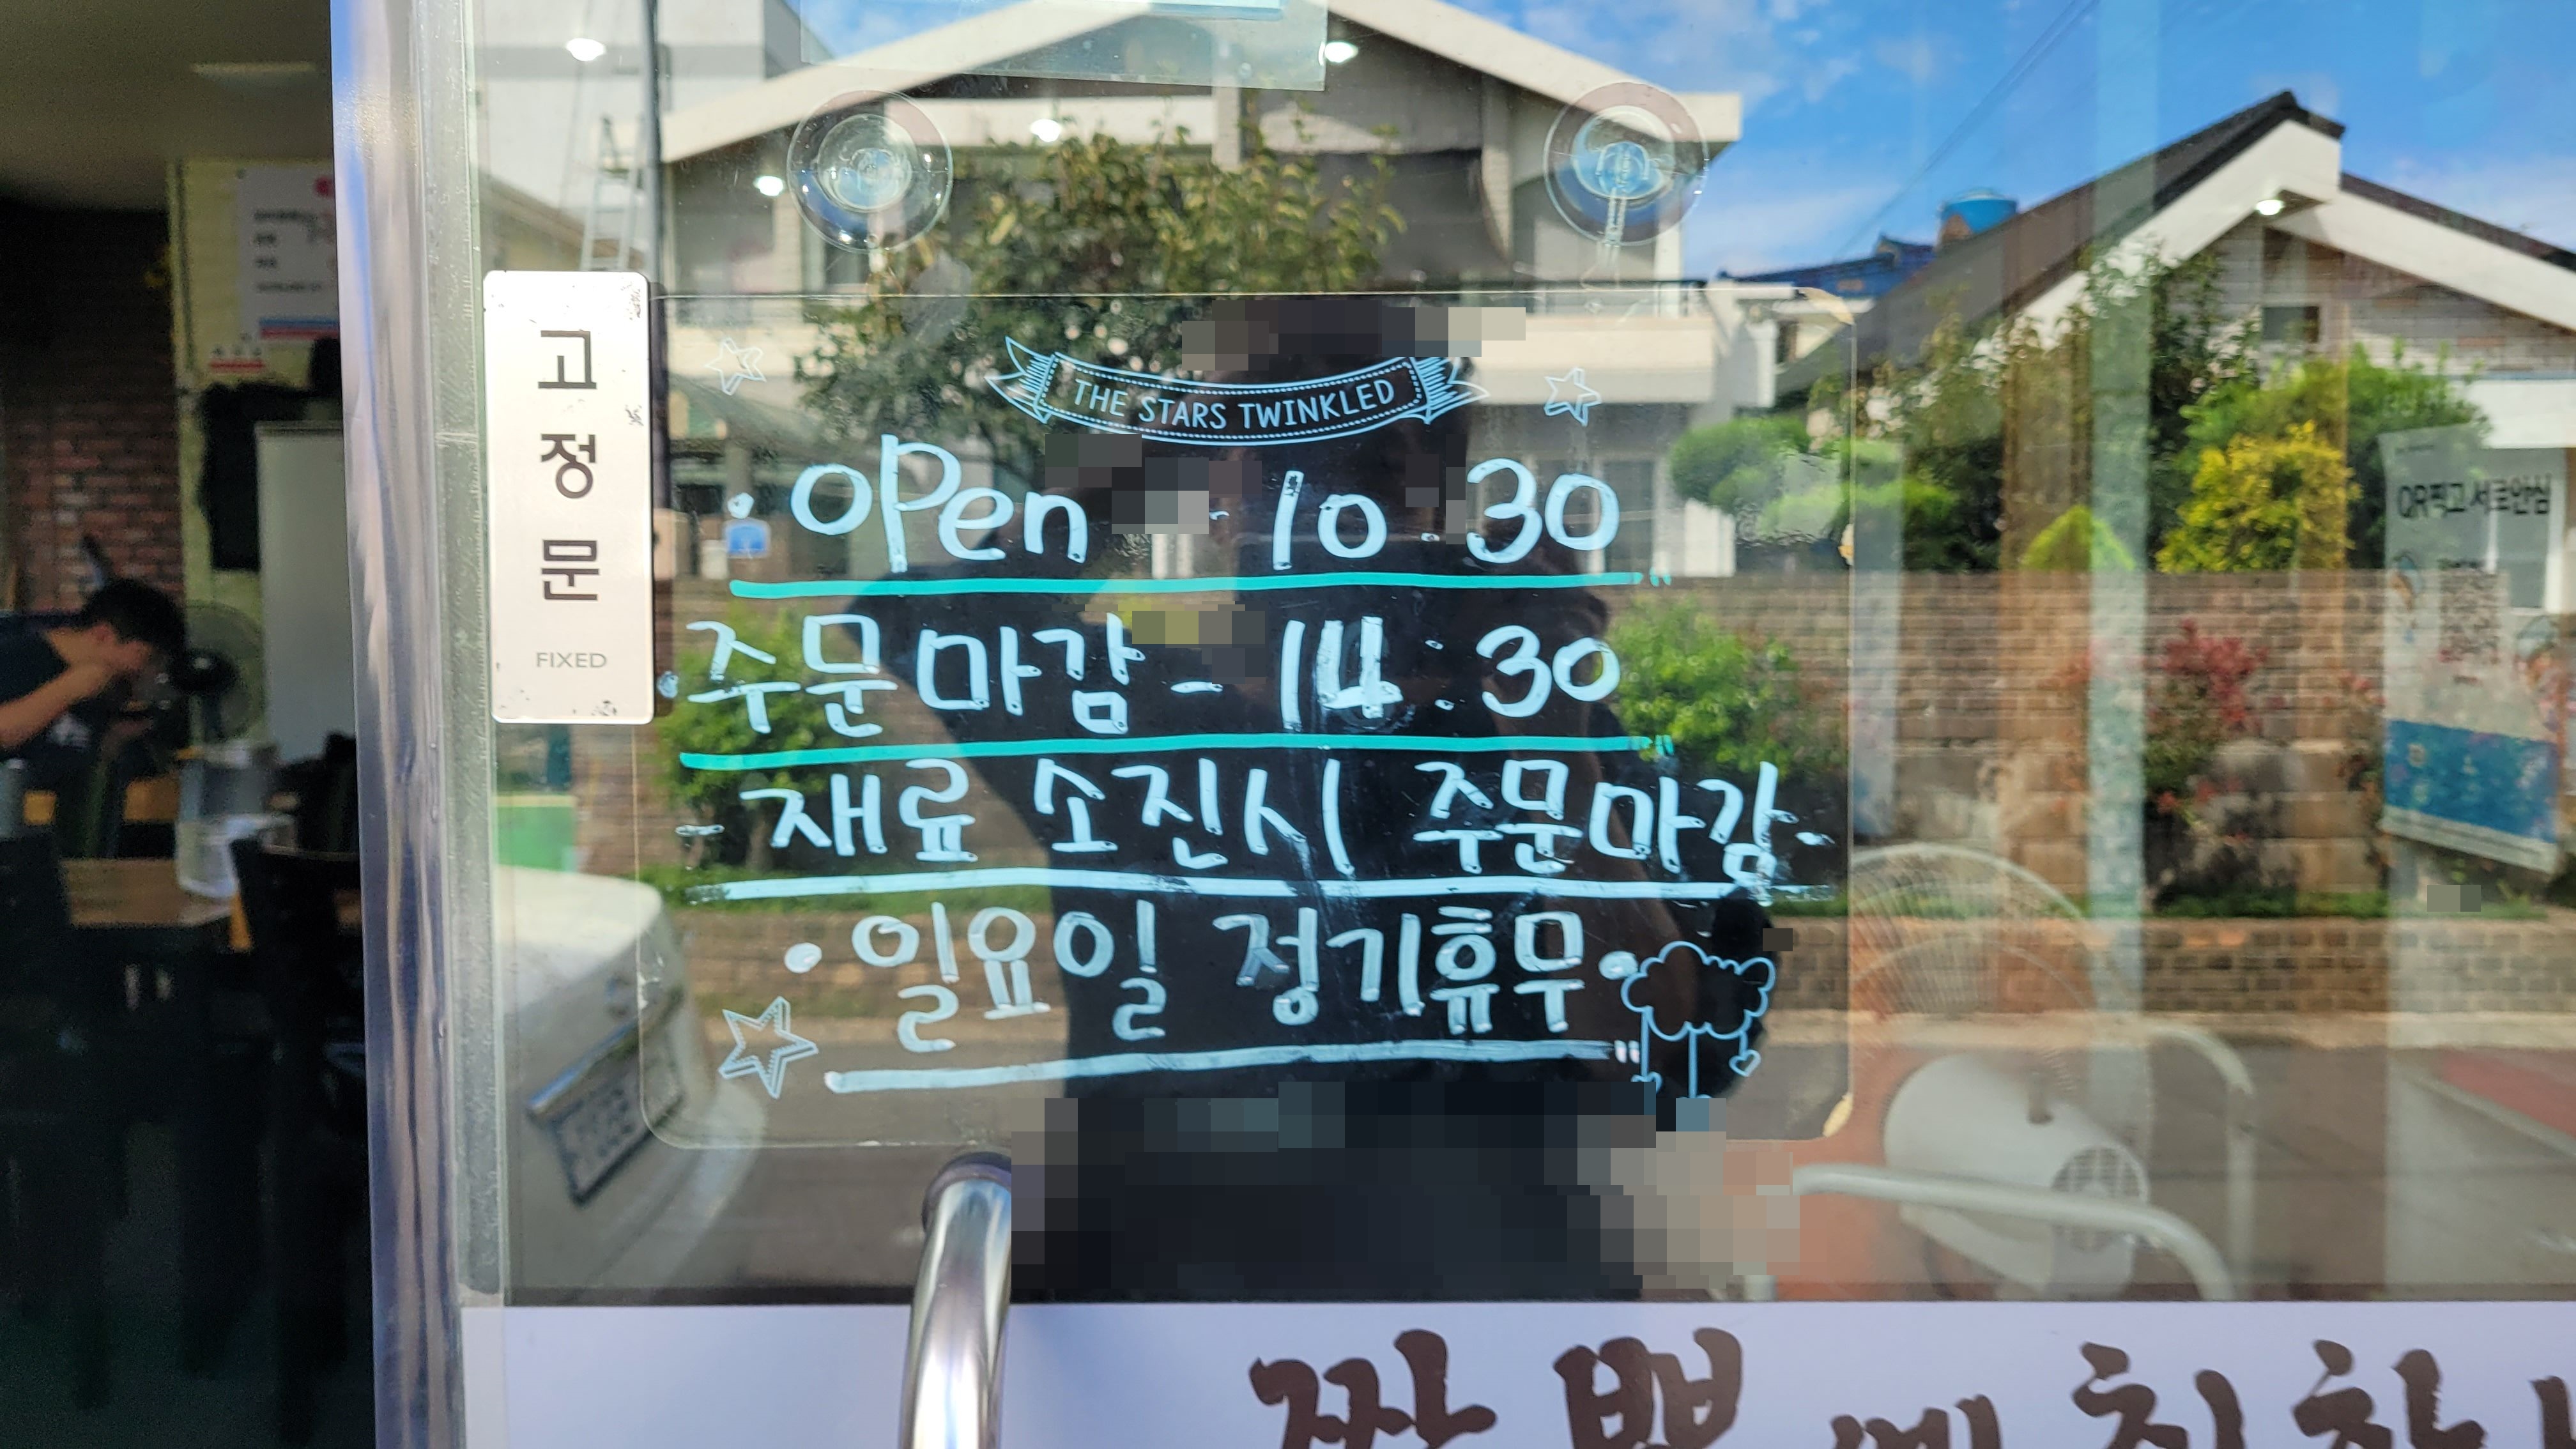 고정문
FIXED
THE STARS TWINKLED
· open - 10:30
· 주문마감 - 14:30
- 재료 소진시 주문마감 -
· 일요일 정기휴무 ·
QR찍고 서로안심
짬뽕에 취하